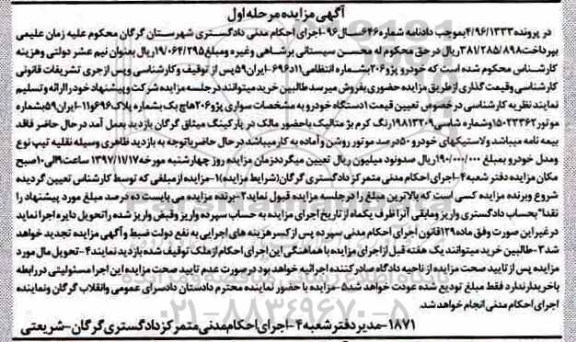 آگهی مزایده مرحله اول
در پرونده ۴/۹۶/۱۳۳۳ بموجب دادنامه شماره ۶۴۶ سال ۹۶-اجرای احکام مدنی دادگستری شهرستان گرگان محکوم علیه زمان علیمی
بپرداخت ۳۸۱/۲۸۵/۸۹۸ ریال در حق محکوم له محسن سیستانی برشاهی وغیره ومبلغ ۱۹/۰۶۴/۲۹۵ ریال بعنوان نیم عشر دولتی وهزینه
کارشناس محکوم شده است که خودرو پژو ۲۰۶ بشماره انتظامی ۱۱د۶۹۶-ایران ۵۹ پس از توقیف وکارشناسی وپس ازجری تشریفات قانونی
کارشناسی وقیمت گذاری از طریق مزایده حضوری بفروش میرسد طالبین خرید میتوانند در جلسه مزایده شرکت وپیشنهاد خود را ارائه و تسلیم
نمایند نظریه کارشناسی در خصوص تعیین قیمت ۱دستگاه خودرو به مشخصات سواری پژو ۲۰۶ هاچ بک بشماره پلاک ۶۹۶و۱۱-ایران ۵۹ بشماره
موتور ۱۵۰۲۳۳۶۲ وشماره شاسی ۱۹۸۱۳۲۰۹ رنگ کرم بژ متالیک باحضور مالک در پارکینگ میثاق گرگان بازدید بعمل آمد در حال حاضر فاقد
بیمه نامه میباشد ولاستیکهای خودرو ۵۰درصد موتور روشن و آماده به کار میباشد در حال حاضر باتوجه به بازدید ظاهری وسیله نقلیه تیپ نوع
ومدل خودرو بمبلغ ۱۹۰/۰۰۰/۰۰۰ ریال صدونود میلیون ریال تعیین میگردد زمان مزایده روز چهارشنبه مورخه ۱۳۹۷/۱۱/۱۷ ساعت ۹ الی ۱۰ صبح
مکان مزایده دفتر شعبه ۴-اجرای احکام مدنی متمرکز دادگستری گرگان(شرایط مزایده)۱-مزایده از مبلغی که توسط کارشناس تعیین گردیده
شروع وبرنده مزایده کسی است که بالاترین مبلغ را در جلسه مزایده قبول نماید۲-برنده مزایده می بایست ده درصد مبلغ مورد پیشنهاد را
نقدا"بحساب دادگستری واریز ومابقی آنرا ظرف یکماه از تاریخ اجرای مزایده به حساب سپرده واریز وقبض واریز شده را تحویل دایره اجرا نماید
در غیر این صورت وفق ماده ۱۲۹ قانون اجرای احکام مدنی سپرده پس از کسر هزینه های اجرایی به نفع دولت ضبط و آگهی مزایده تجدید خواهد
شد۳-طالبین خرید میتوانند یک هفته قبل از اجرای مزایده با هماهنگی این اجرای احکام از ملک توقیف شده بازدید نمایند۴-تحویل مال مورد
مزایده پس از تایید صحت مزایده از ناحیه دادگاه صادر کننده اجرائیه خواهد بود در صورت عدم تایید صحت مزایده این اجرا مسئولیتی در رابطه
باخریدار ندارد فقط مبلغ تودیع شده عودت خواهد شد۵-مزایده با حضور نماینده محترم دادستان دادسرای عمومی وانقلاب گرگان ونماینده
اجرای احکام مدنی انجام خواهد شد.
۱۸۷۱-مدیر دفتر شعبه ۴-اجرای احکام مدنی متمرکز دادگستری گرگان-شریعتی
۰۲۱-۸۸۳۴۹۶۷۰-۵